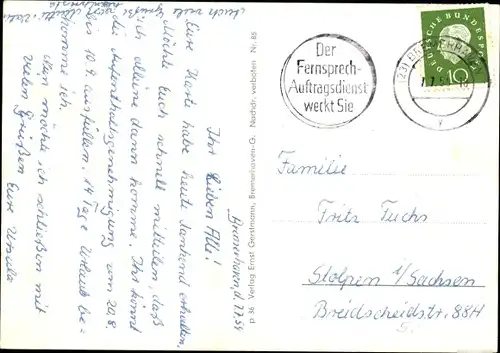 Bremerhaven, d. 7.7.59
Ihr Lieben Alle!
Eure Karte habe heute dankend erhalten.
Möchte Euch schnell mitteilen, daß
ich alleine dann komme. Ihr könnt
die Aufenthaltsgenehmigung vom 20.8.
bis 10.9. ausfüllen. 14 Tage Urlaub be-
komme ich.
Nun möchte ich schließen mit
vielen Grüßen
Eure Ursula
Auch viele
Grüße
p 36 Verlag Ernst Gerstmann, Bremerhaven-G. Nachdr. verboten Nr. 85
Der
Fernsprech-
Auftragsdienst
weckt Sie
DEUTSCHE BUNDESPOST
10
Familie
Fritz Fuchs
Stolpen i/Sachsen
Breidscheidstr. 88H